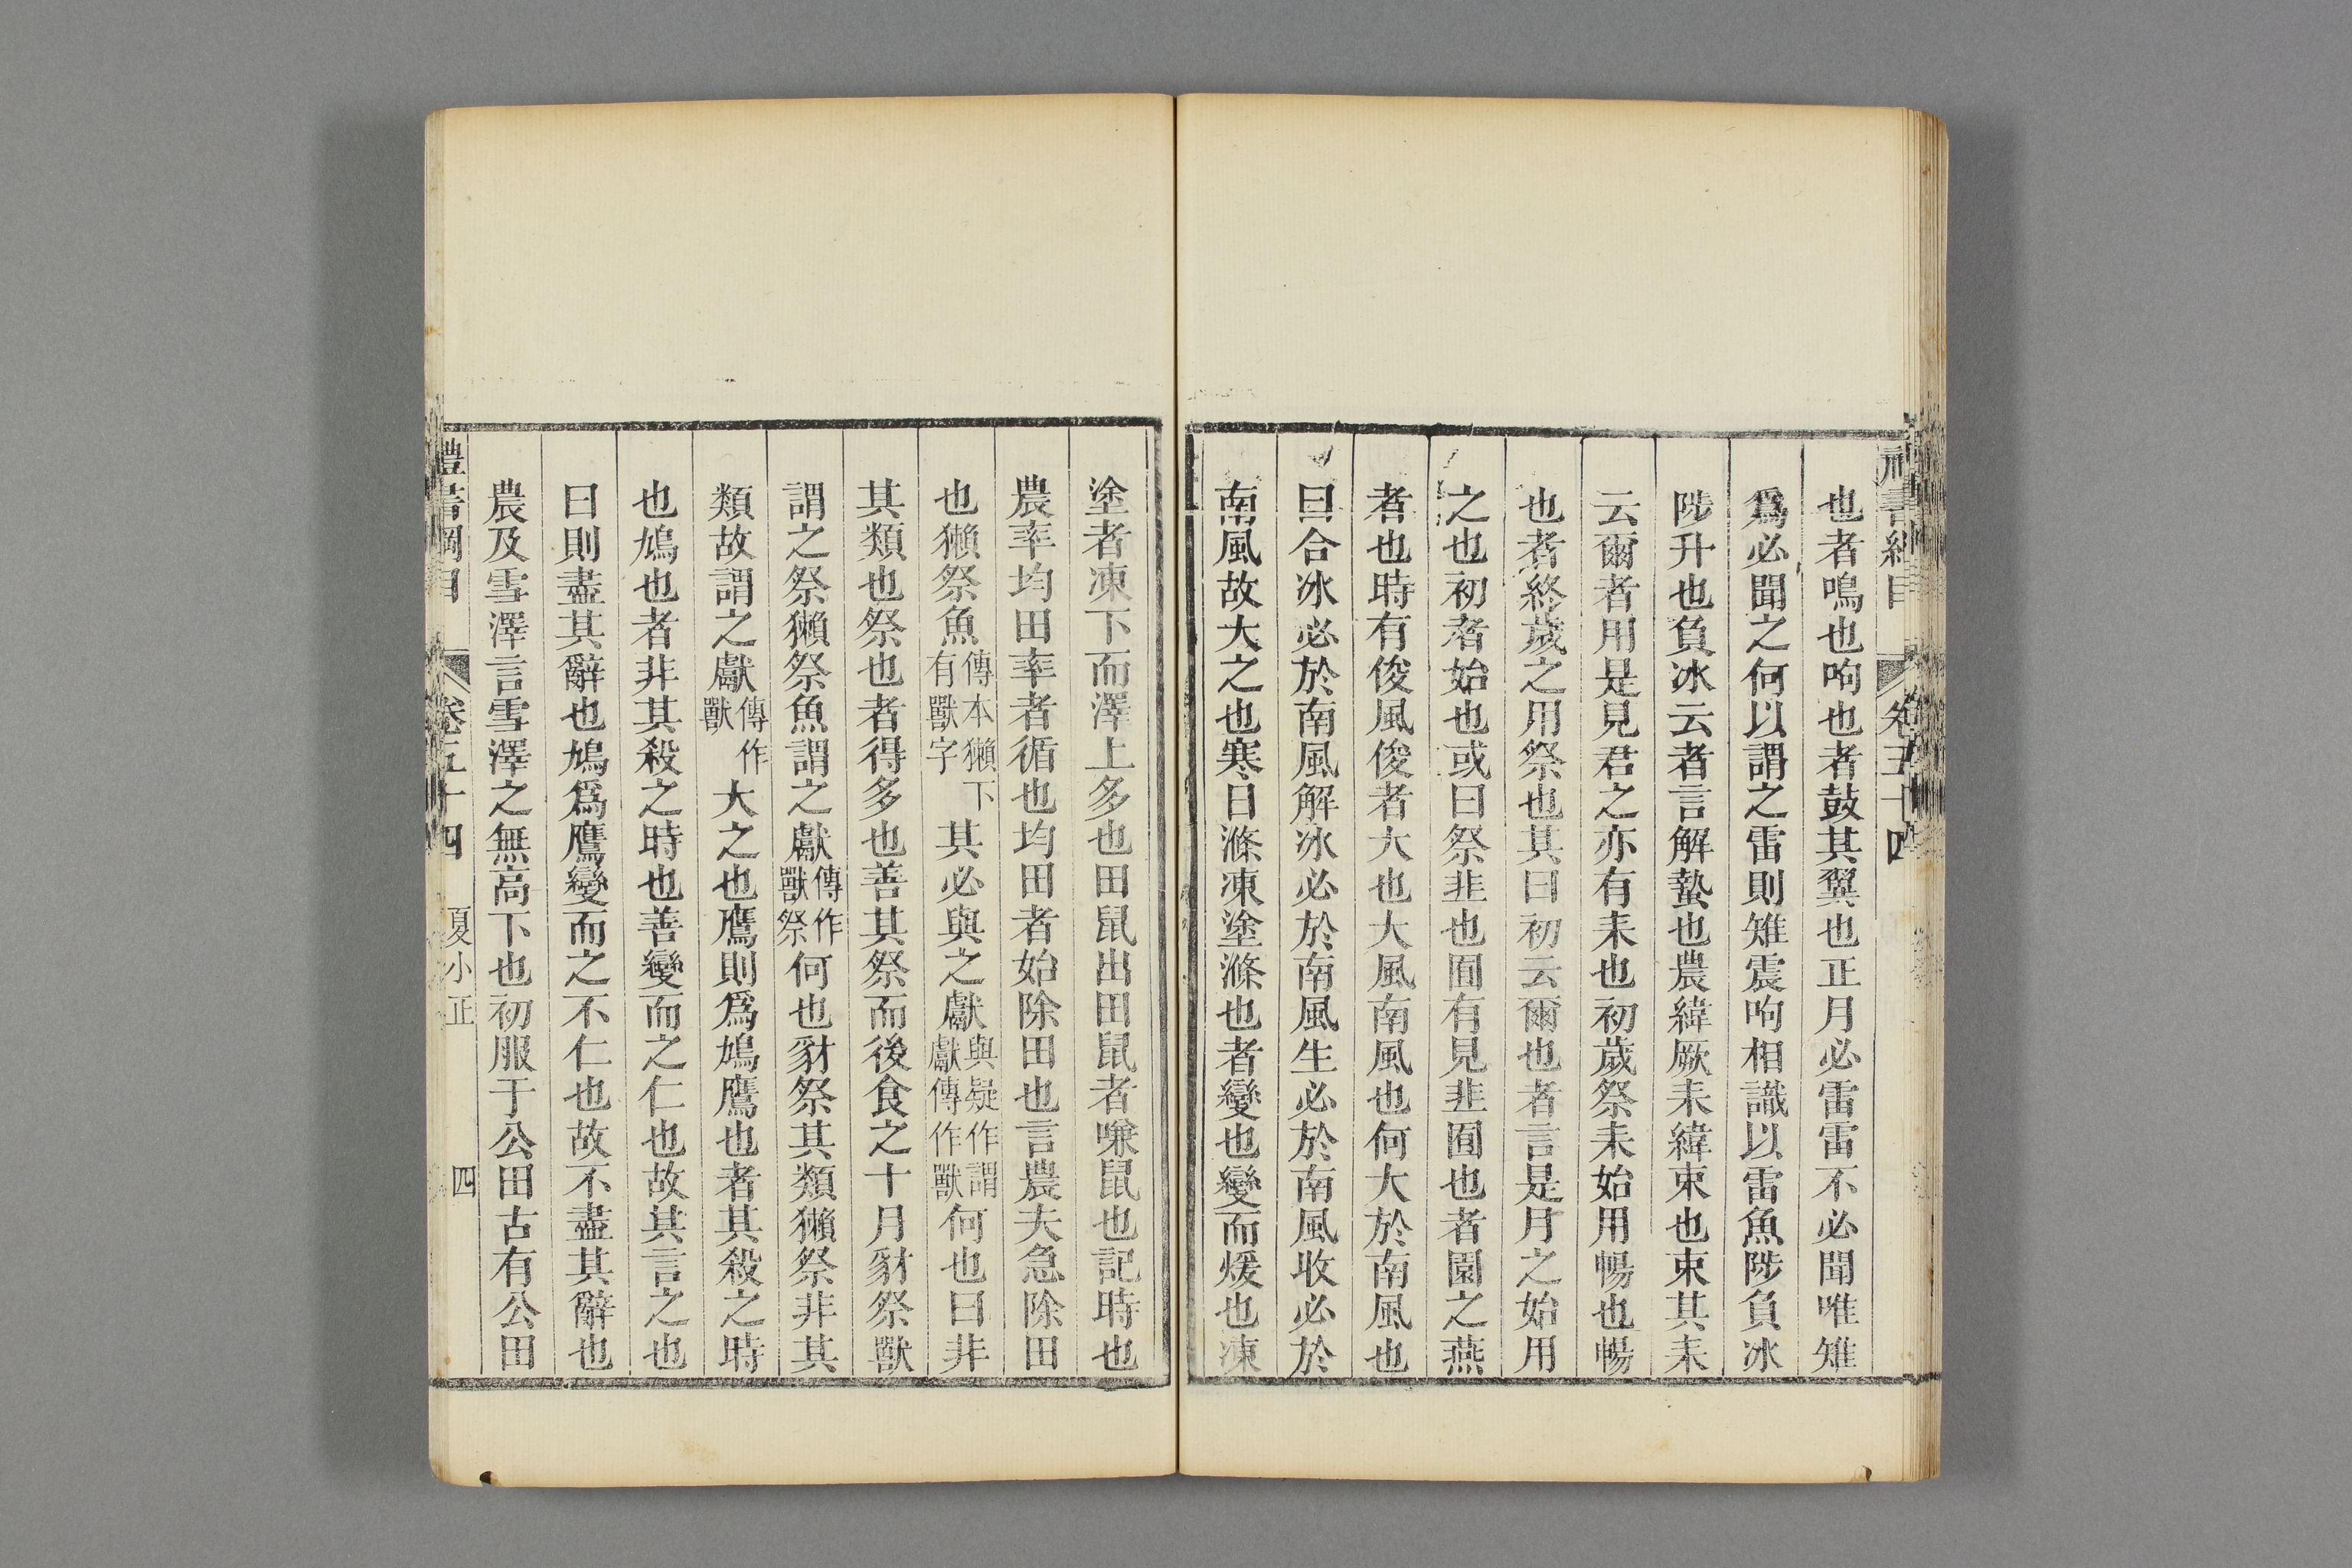 禮書綱目 卷五十四
也者鳴也呴也者鼓其翼也正月必雷雷不必聞唯雉
爲必聞之何以謂之雷則雉震呴相識以雷魚陟負冰
陟升也負冰云者言解蟄也農緯厥耒緯束也束其耒
云爾者用是見君之亦有耒也初歲祭耒始用暢也暢
也者終歲之用祭也其曰初云爾也者言是月之始用
之也初者始也或曰祭韭也囿有見韭囿也者園之燕
者也時有俊風俊者大也大風南風也何大於南風也
曰合冰必於南風解冰必於南風生必於南風收必於
南風故大之也寒日滌凍塗滌也者變也變而煖也凍
塗者凍下而澤上多也田鼠出田鼠者嗛鼠也記時也
農率均田率者循也均田者始除田也言農夫急除田
也獺祭魚傳本獺下有獸字其必與之獻與疑作謂獻傳作獸何也曰非
其類也祭也者得多也善其祭而後食之十月豺祭獸
謂之祭獺祭魚謂之獻傳作獸祭何也豺祭其類獺祭非其
類故謂之獻傳作獸大之也鷹則爲鳩鷹也者其殺之時
也鳩也者非其殺之時也善變而之仁也故其言之也
曰則盡其辭也鳩爲鷹變而之不仁也故不盡其辭也
農及雪澤言雪澤之無高下也初服于公田古有公田
禮書綱目 卷五十四 夏小正 四